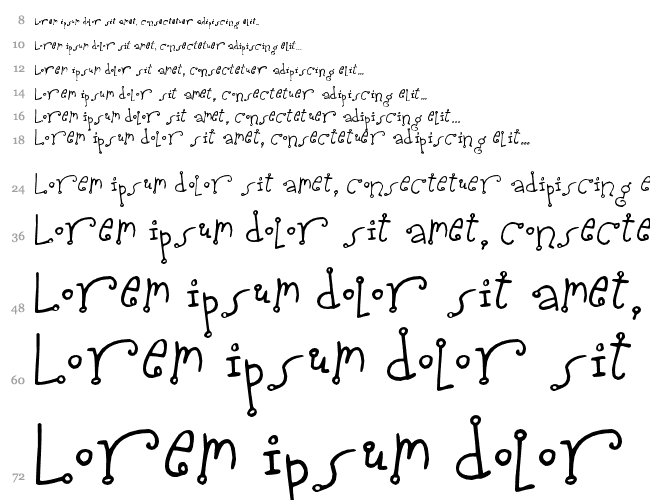 8 Lorem ipsum dolor sit amet, consectetuer adipiscing elit...
10 Lorem ipsum dolor sit amet, consectetuer adipiscing elit...
12 Lorem ipsum dolor sit amet, consectetuer adipiscing elit...
14 Lorem ipsum dolor sit amet, consectetuer adipiscing elit...
16 Lorem ipsum dolor sit amet, consectetuer adipiscing elit...
18 Lorem ipsum dolor sit amet, consectetuer adipiscing elit...
24 Lorem ipsum dolor sit amet, consectetuer adipiscing e
36 Lorem ipsum dolor sit amet, consecte
48 Lorem ipsum dolor sit amet,
60 Lorem ipsum dolor sit
72 Lorem ipsum dolor